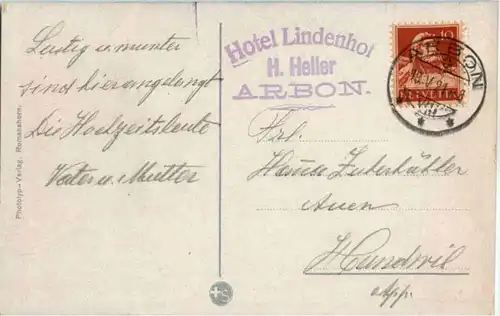 Lustig u. munter
sind hier angelangt
Die Hochzeitsleute
Vater u. Mutter
Photo typ-Verlag, Romanshorn.
Hotel Lindenhof
H. Heller
ARBON.
10
HELVETIA
ARBON
Frl.
Zuberbühler
Auen
Hundwil
App.